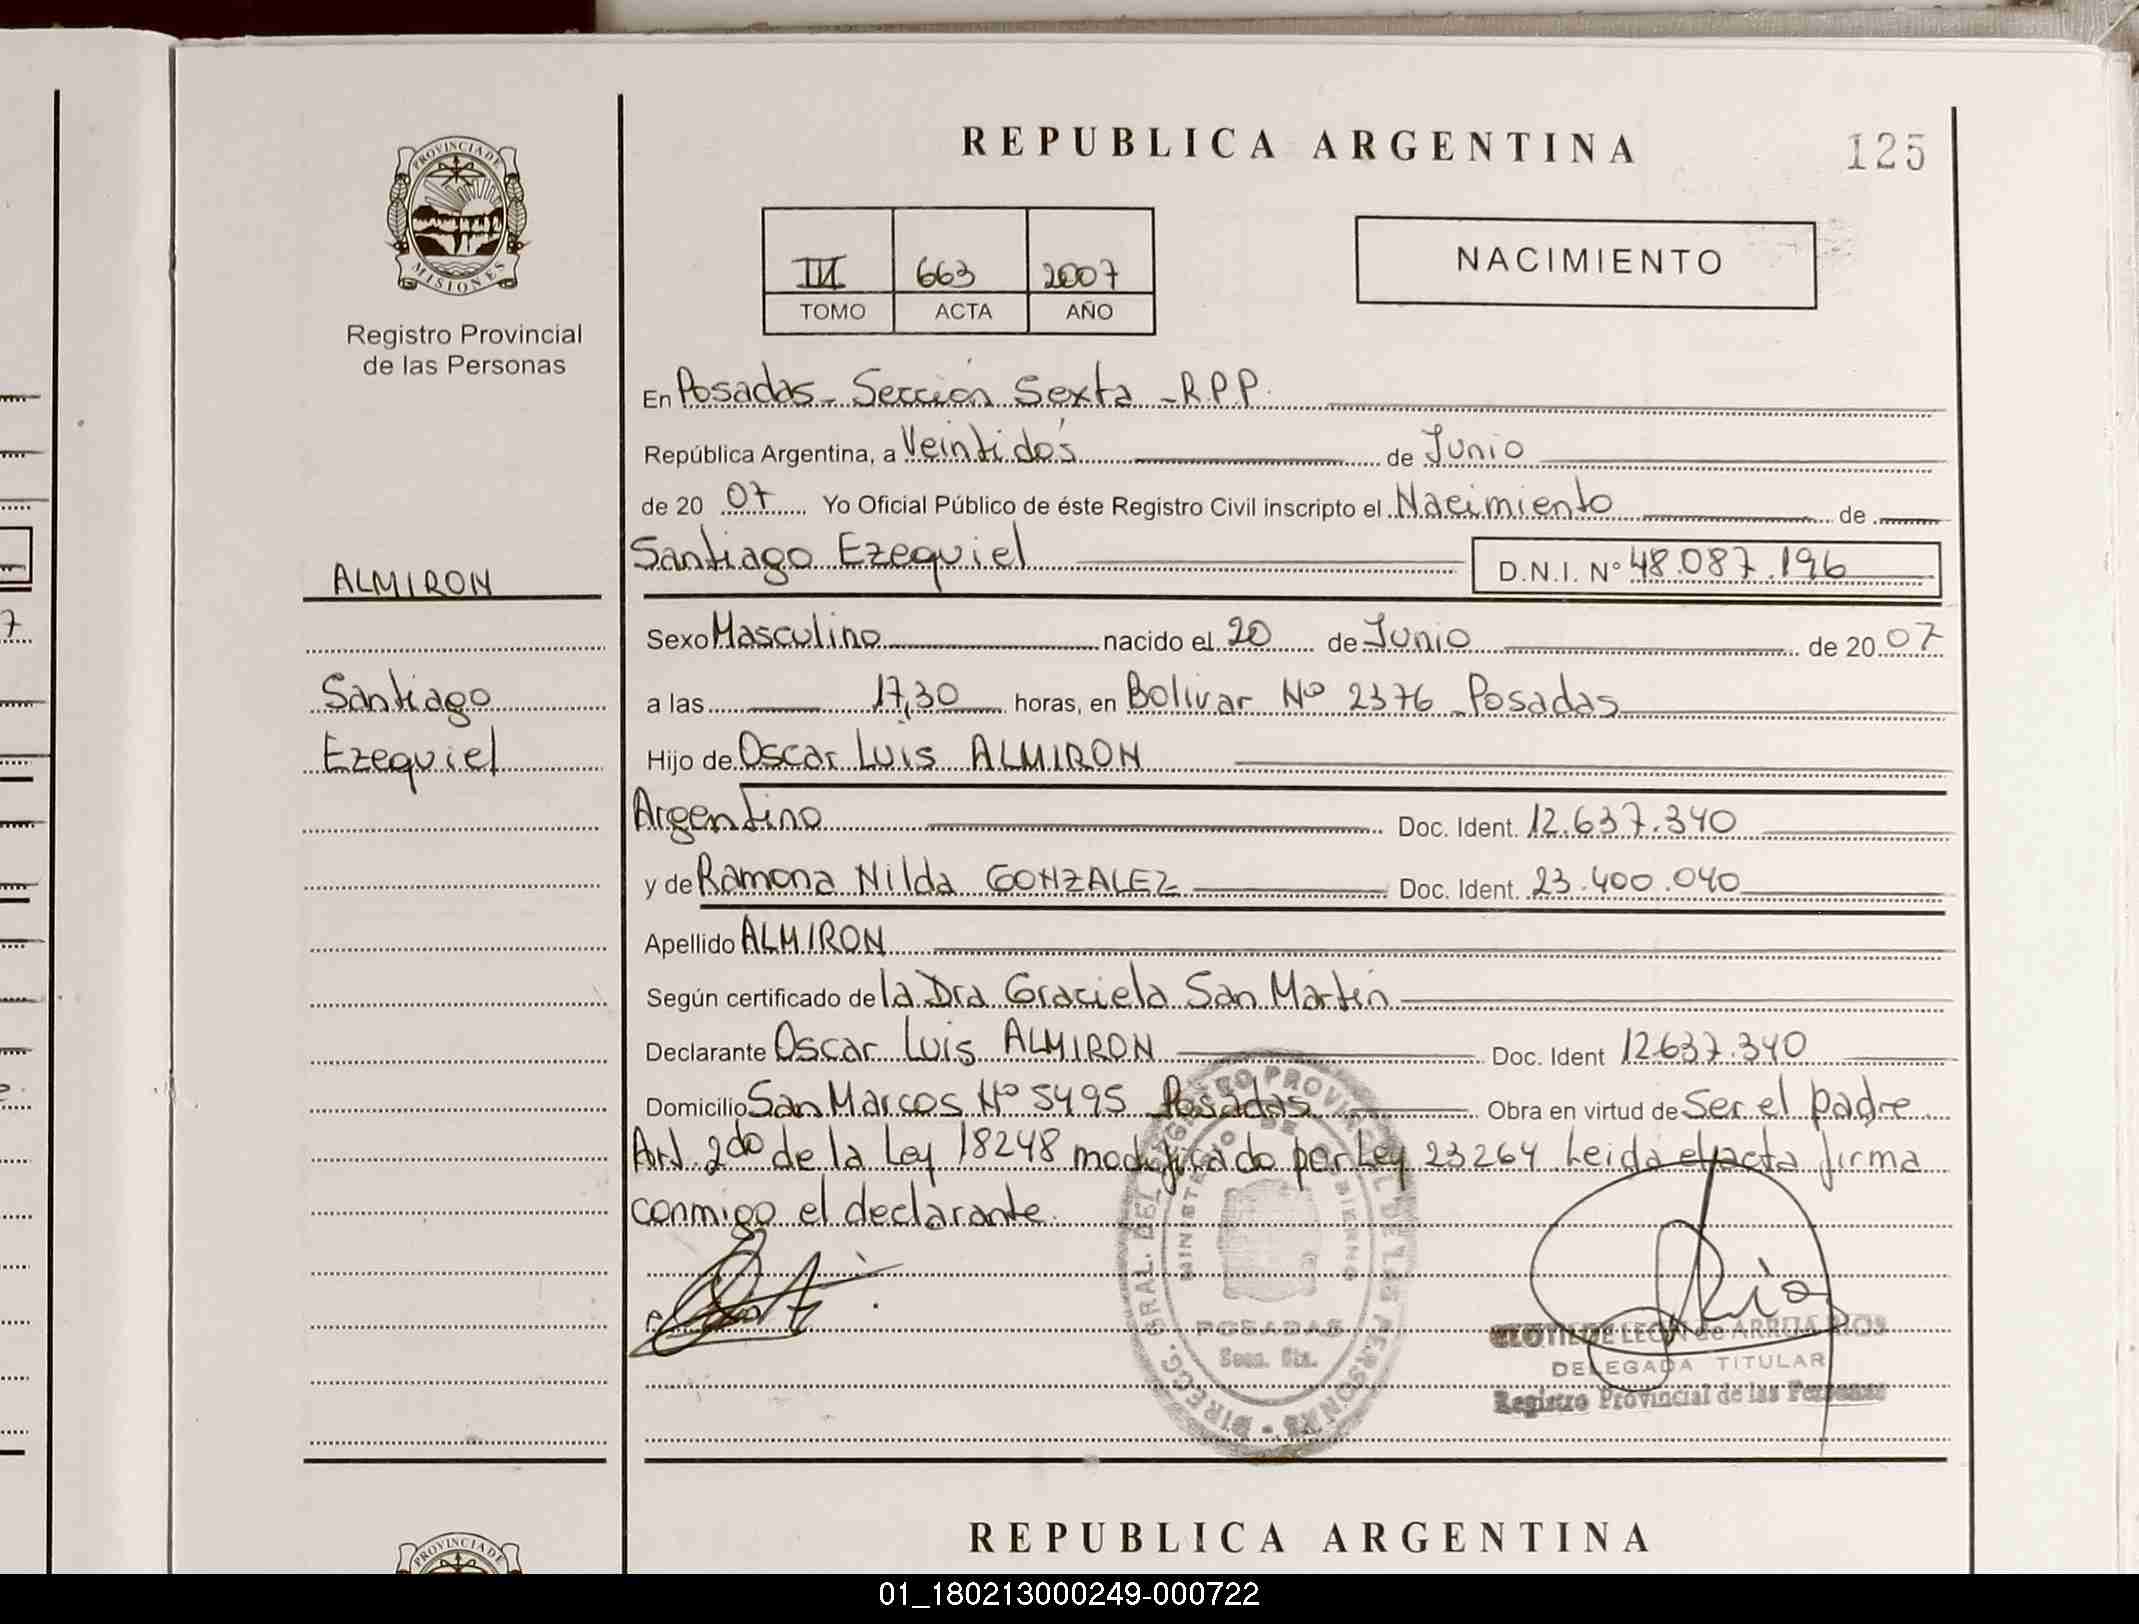 REPUBLICA ARGENTINA
125
PROVINCIA DE
MISIONES
Registro Provincial
de las Personas
III 663 2007
TOMO ACTA AÑO
NACIMIENTO
En Posadas - Sección Sexta - R.P.P.
República Argentina, a Veintidós de Junio
de 20 07 Yo Oficial Público de éste Registro Civil inscripto el Nacimiento de
Santiago Ezequiel D.N.I. Nº 48.087.196
ALMIRON
Santiago
Ezequiel
Sexo Masculino nacido el 20 de Junio de 20 07
a las 17,30 horas, en Bolivar Nº 2376 - Posadas
Hijo de Oscar Luis ALMIRON
Argentino Doc. Ident. 12.637.340
y de Ramona Nilda GONZALEZ Doc. Ident. 23.400.040
Apellido ALMIRON
Según certificado de la Dra Graciela San Martin
Declarante Oscar Luis ALMIRON Doc. Ident 12637.340
Domicilio San Marcos Nº 5495 Posadas Obra en virtud de Ser el padre
Art. 2do de la Ley 18248 modificado por Ley 23264 Leida el acta firma
conmigo el declarante.
DIRECC. GRAL. DEL REGISTRO PROVINCIAL DE LAS PERSONAS
MINISTERIO DE GOBIERNO
POSADAS
Secc. 6ta.
CLOTILDE LEON de ARRUA RIOS
DELEGADA TITULAR
Registro Provincial de las Personas
REPUBLICA ARGENTINA
PROVINCIA DE
01_180213000249-000722